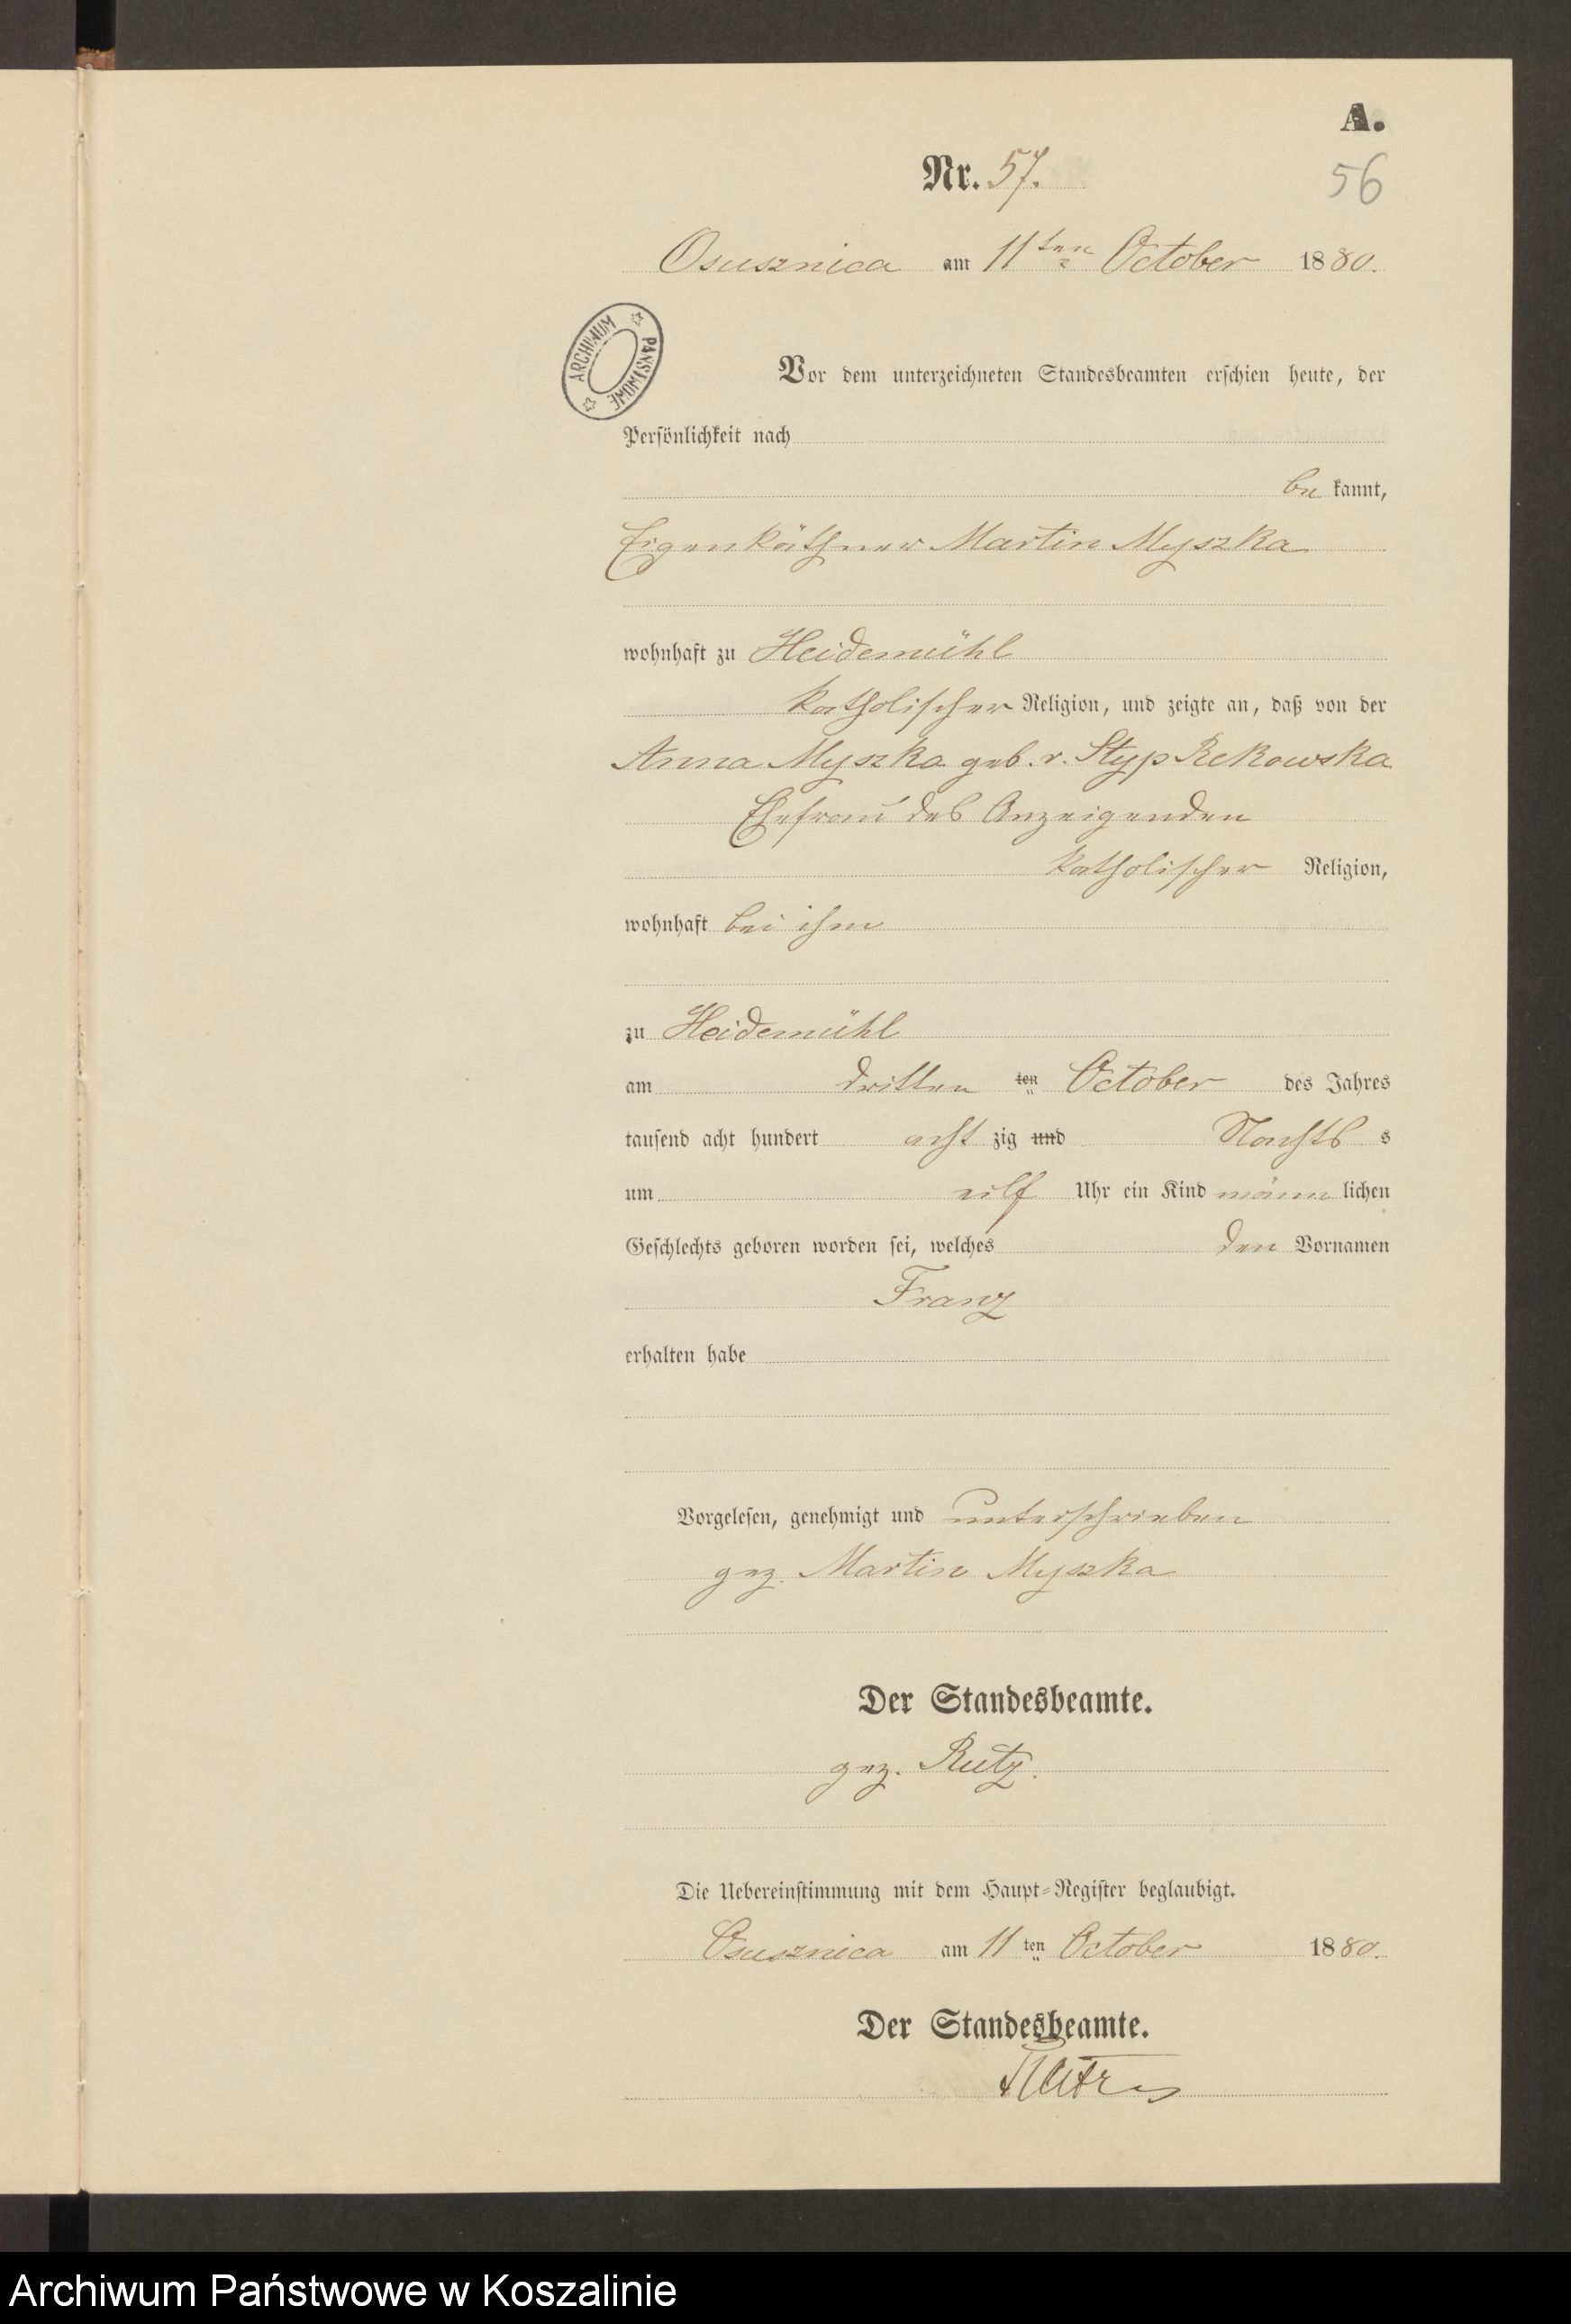 A.
Nr. 57.
56
Osusznica am 11ten October 1880.
ARCHIWUM PAŃSTWOWE
Vor dem unterzeichneten Standesbeamten erschien heute, der
Persönlichkeit nach
be kannt,
Eigenkäthner Martin Myszka
wohnhaft zu Heidemühl
katholischer Religion, und zeigte an, daß von der
Anna Myszka geb. v. Styp Rekowska
Ehefrau des Anzeigenden
katholischer Religion,
wohnhaft bei ihm
zu Heidemühl
am dritten ten October des Jahres
tausend acht hundert acht zig und Nachts s
um eilf Uhr ein Kind männ lichen
Geschlechts geboren worden sei, welches den Vornamen
Franz
erhalten habe
Vorgelesen, genehmigt und unterschrieben
gez. Martin Myszka
Der Standesbeamte.
gez. Rutz.
Die Uebereinstimmung mit dem Haupt-Register beglaubigt.
Osusznica am 11 ten October 1880.
Der Standesbeamte.
Rutz
Archiwum Państwowe w Koszalinie